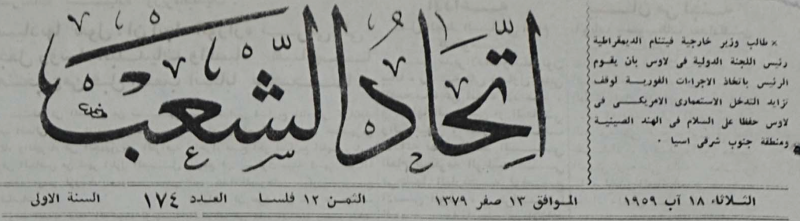 اتحاد الشعب
× طالب وزير خارجية فيتنام الديمقراطية
رئيس اللجنة الدولية فى لاوس بان يقوم
الرئيس باتخاذ الاجراءات الفورية لوقف
تزايد التدخل الاستعمارى الامريكى فى
لاوس حفظا على السلام فى الهند الصينية
ومنطقة جنوب شرقى اسيا ٠
الثلاثاء ١٨ آب ١٩٥٩ الموافق ١٣ صفر ١٣٧٩ الثمن ١٢ فلسا العدد ١٧٤ السنة الاولى